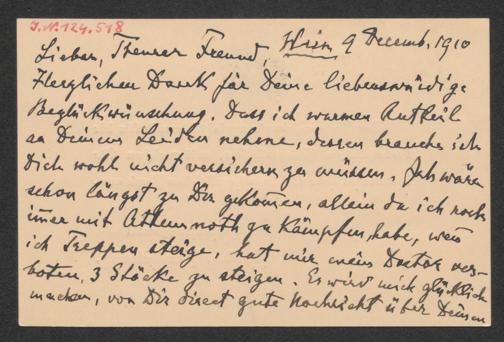 J.N. 124.518
Wien 9 Decemb. 1910
Lieber, Theurer Freund,
Herzlichen Dank für Deine liebenswürdige
Beglückwünschung. Dass ich warmen Antheil
an Deinem Leiden nehme, dessen brauche ich
Dich wohl nicht versichern zu müssen. Ich wäre
schon längst zu Dir gekommen, allein da ich noch
im̄er mit Athemnoth zu kämpfen habe, wen̄
ich Treppen steige, hat mir mein Doctor ver-
boten, 3 Stöcke zu steigen. Es wird mich glücklich
machen, von Dir direct gute Nachricht über Deinen